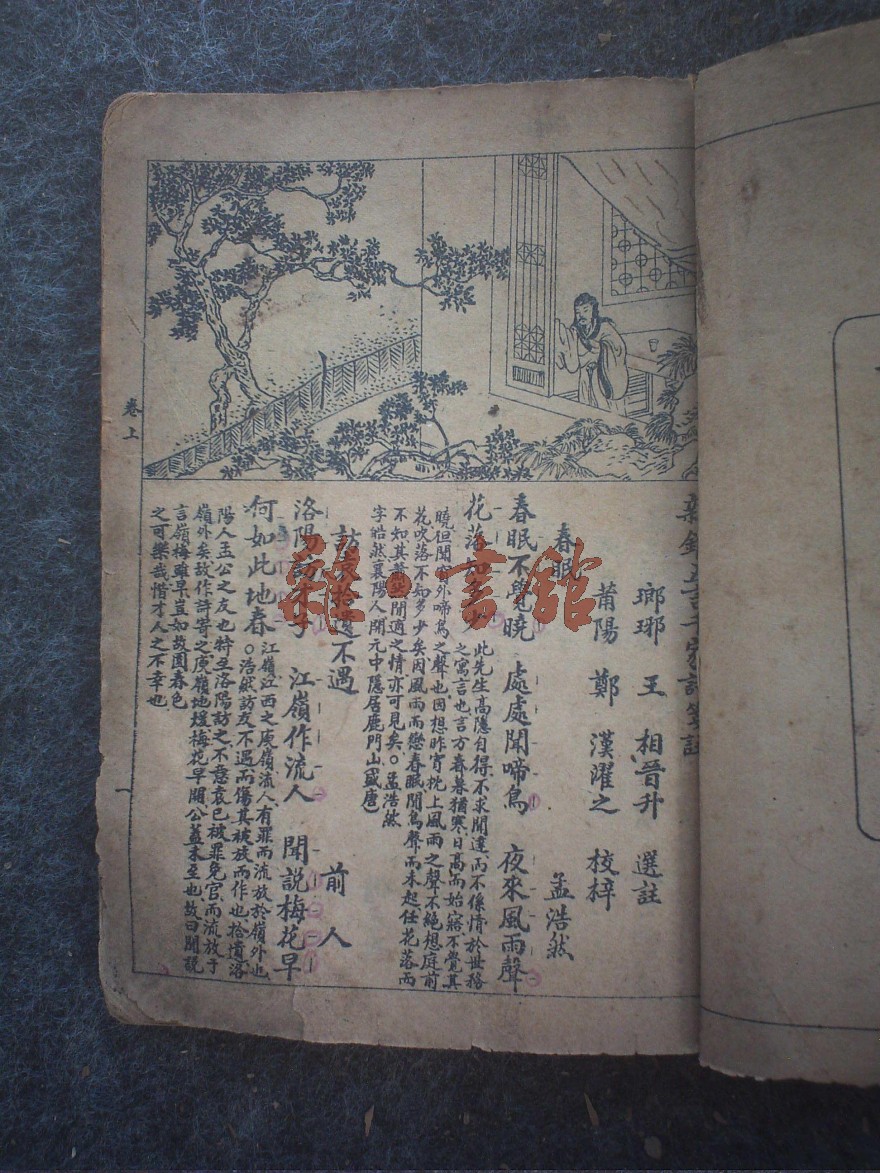 新鐫五言千家詩箋註
瑯琊 王 相晉升 選註
莆陽 鄭 漢濯之 校梓
春眠 孟浩然
春眠不覺曉 處處聞啼鳥 夜來風雨聲
花落知多少 此先生高隱自得不求聞達而不係情於世務
之寓言也言方春暮猶寒日高而始寤不覺其
曉但聞窗外啼鳥之聲也因想昨宵枕上風雨之聲不絕想庭前
花吹落不知多少矣因風雨而戀春眠聞鳥聲而未起任花落而
不知其蕭然閒適之情亦可見矣○孟浩然
字皓然襄陽人開元中隱居鹿門山盛唐
訪袁拾遺不遇 前人
洛陽訪才子 江嶺作流人 聞說梅花早
何如此地春 江嶺江西之庾嶺流人有罪而流放於嶺外也
○浩然訪友不遇而傷其被放而作也拾遺洛
陽人孟公之友也特至洛陽訪之不意袁已被罪免官而流放于
嶺外矣故作詩寄之庾嶺地煖梅花早開公蓋未至也故曰聞說
言嶺梅雖早豈如故園春色
之可樂哉惜才人之不幸也
卷上
一
雜·書館